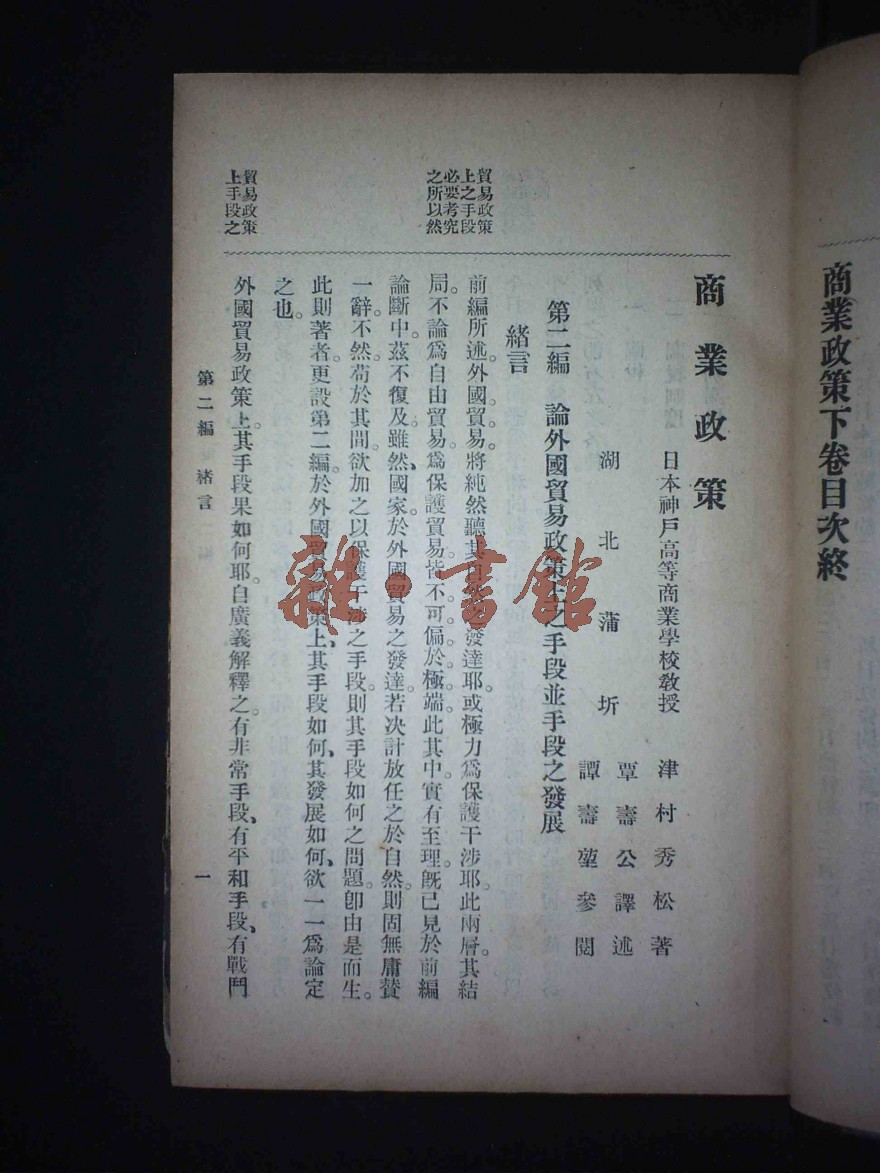 商業政策下卷目次終
商業政策
日本神戶高等商業學校教授　津村秀松著
湖北蒲圻　覃壽公譯述
譚壽堃參閱
第二編　論外國貿易政策上之手段並手段之發展
緒言
貿易政策
上之手段
必要考究
之所以然
前編所述。外國貿易。將純然聽其自然之發達耶。或極力爲保護干涉耶。此兩層。其結
局。不論爲自由貿易。爲保護貿易。皆不可偏於極端。此其中實有至理。旣已見於前編
論斷中。茲不復及。雖然、國家於外國貿易之發達。若决計放任之於自然。則固無庸贊
一辭。不然。苟於其間。欲加之以保護干涉之手段。則其手段如何之問題。卽由是而生。
此則著者。更設第二編。於外國貿易政策上、其手段如何、其發展如何、欲一一爲論定
之也。
貿易政策
上手段之
外國貿易政策上。其手段果如何耶。自廣義解釋之。有非常手段、有平和手段、有戰鬥
第二編　緒言
一
雜·書館